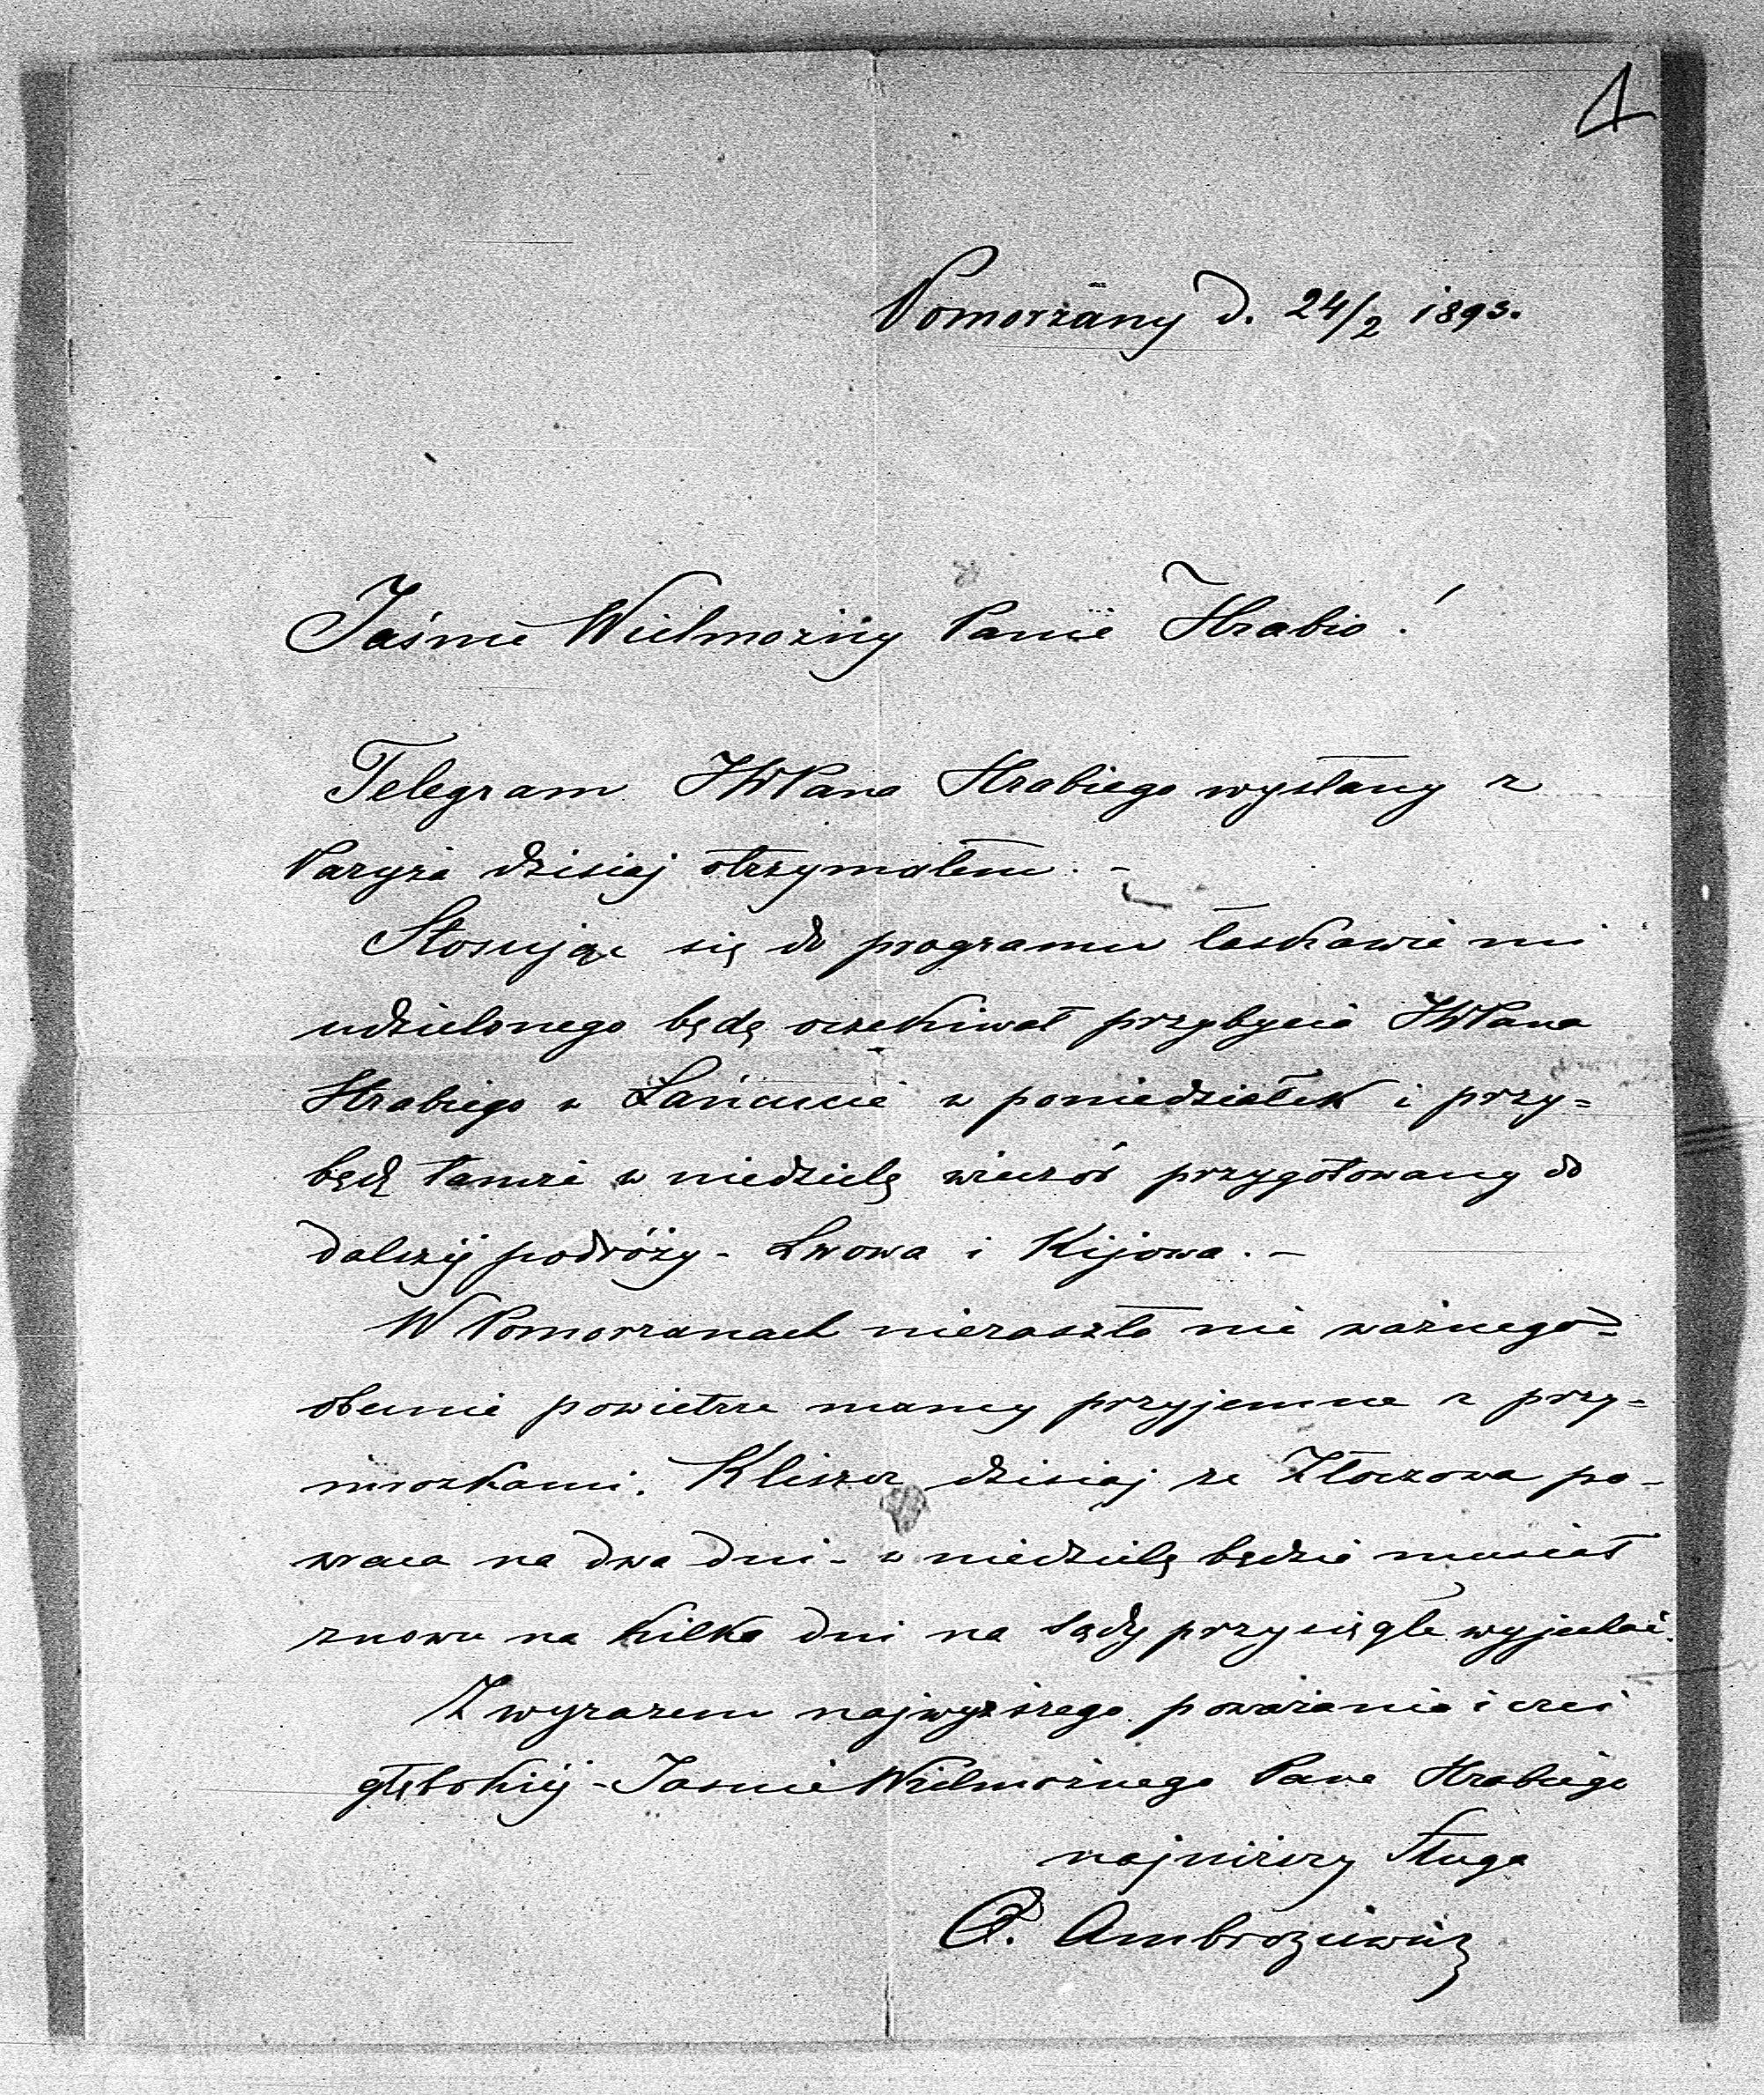 1
Pomorzany d. 24/2 1893.
Jaśnie Wielmożny Panie Hrabio!
Telegram JWPana Hrabiego wysłany z
Paryża dzisiaj otrzymałem. –
Stosując się do programu łaskawie mi
udzielonego będę oczekiwał przybycia JWPana
Hrabiego w Łańcucie w poniedziałek i przy=
będę tamże w niedzielę wieczór przygotowany do
dalszéj podróży – Lwowa i Kijowa. –
W Pomorzanach niezaszło nic ważnego –
obecnie powietrze mamy przyjemne z przy=
mrozkami. Kliszcz dzisiaj ze Złoczowa po-
wraca na dwa dni – w niedzielę będzie musiał
znowu na kilka dni na sądy przysięgłe wyjechać.
Z wyrazem najwyższego poważania i czci
głębokiéj – Jaśnie Wielmożnego Pana Hrabiego
najniższy Sługa
Ambroziewicz